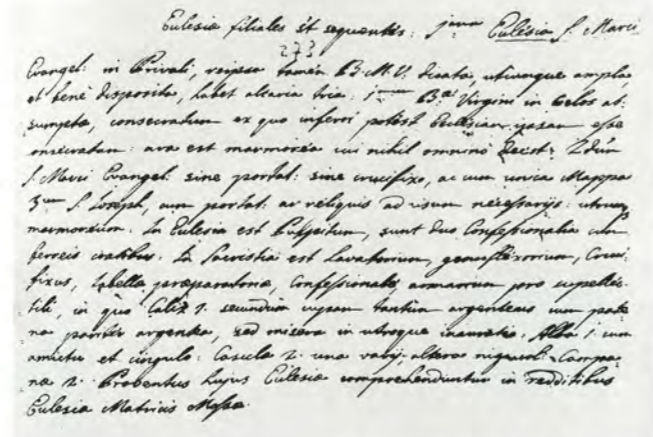 Eclesiæ filiales st sequentes: 1ma Eclesia S. Marci
273
Evangel: in Privali, reipsa tamen B.M.V. dicata, utrumque ampla,
et bene disposita, habet altaria tria: 1um B.æ Virgini in Celos as
sumptæ, consecratum ex quo inferri potest Eclesiam ipsam esse
onsecratam: ara est marmorea cui nihil omnino deest. 2dum
S. Marci Evangel: sine portat: sine crucifixo, ac cum unica Mappa
3um S. Joseph, cum portat: ac reliquis ad usum necessarijs: utrumq
marmoreum. In Eclesia est Pulpitum, sunt duo Confessionalia cum
ferreis cratibus. In Sacristia est Lavatorium, genuflexorium, Cruci
fixus, tabella præparatoria, Confessionale, armarium pro supellec
tili, in quo Calix 1. secundum cupam tantum argenteus cum pate
na pariter argentea, sed misera in utroque inauratio. Alba 1. cum
amictu et cingulo: Casulæ 2. una varij, altera nigri col: Campa
næ 2. Proventus hujus Eclesiæ comprehenduntur in redditibus
Eclesiæ Matricis